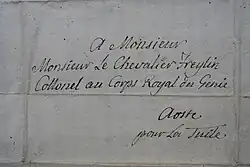 A Monsieur
Monsieur Le Chevalier Freylin
Collonel au Corps Royal du Genie
Aoste
pour La Tuele